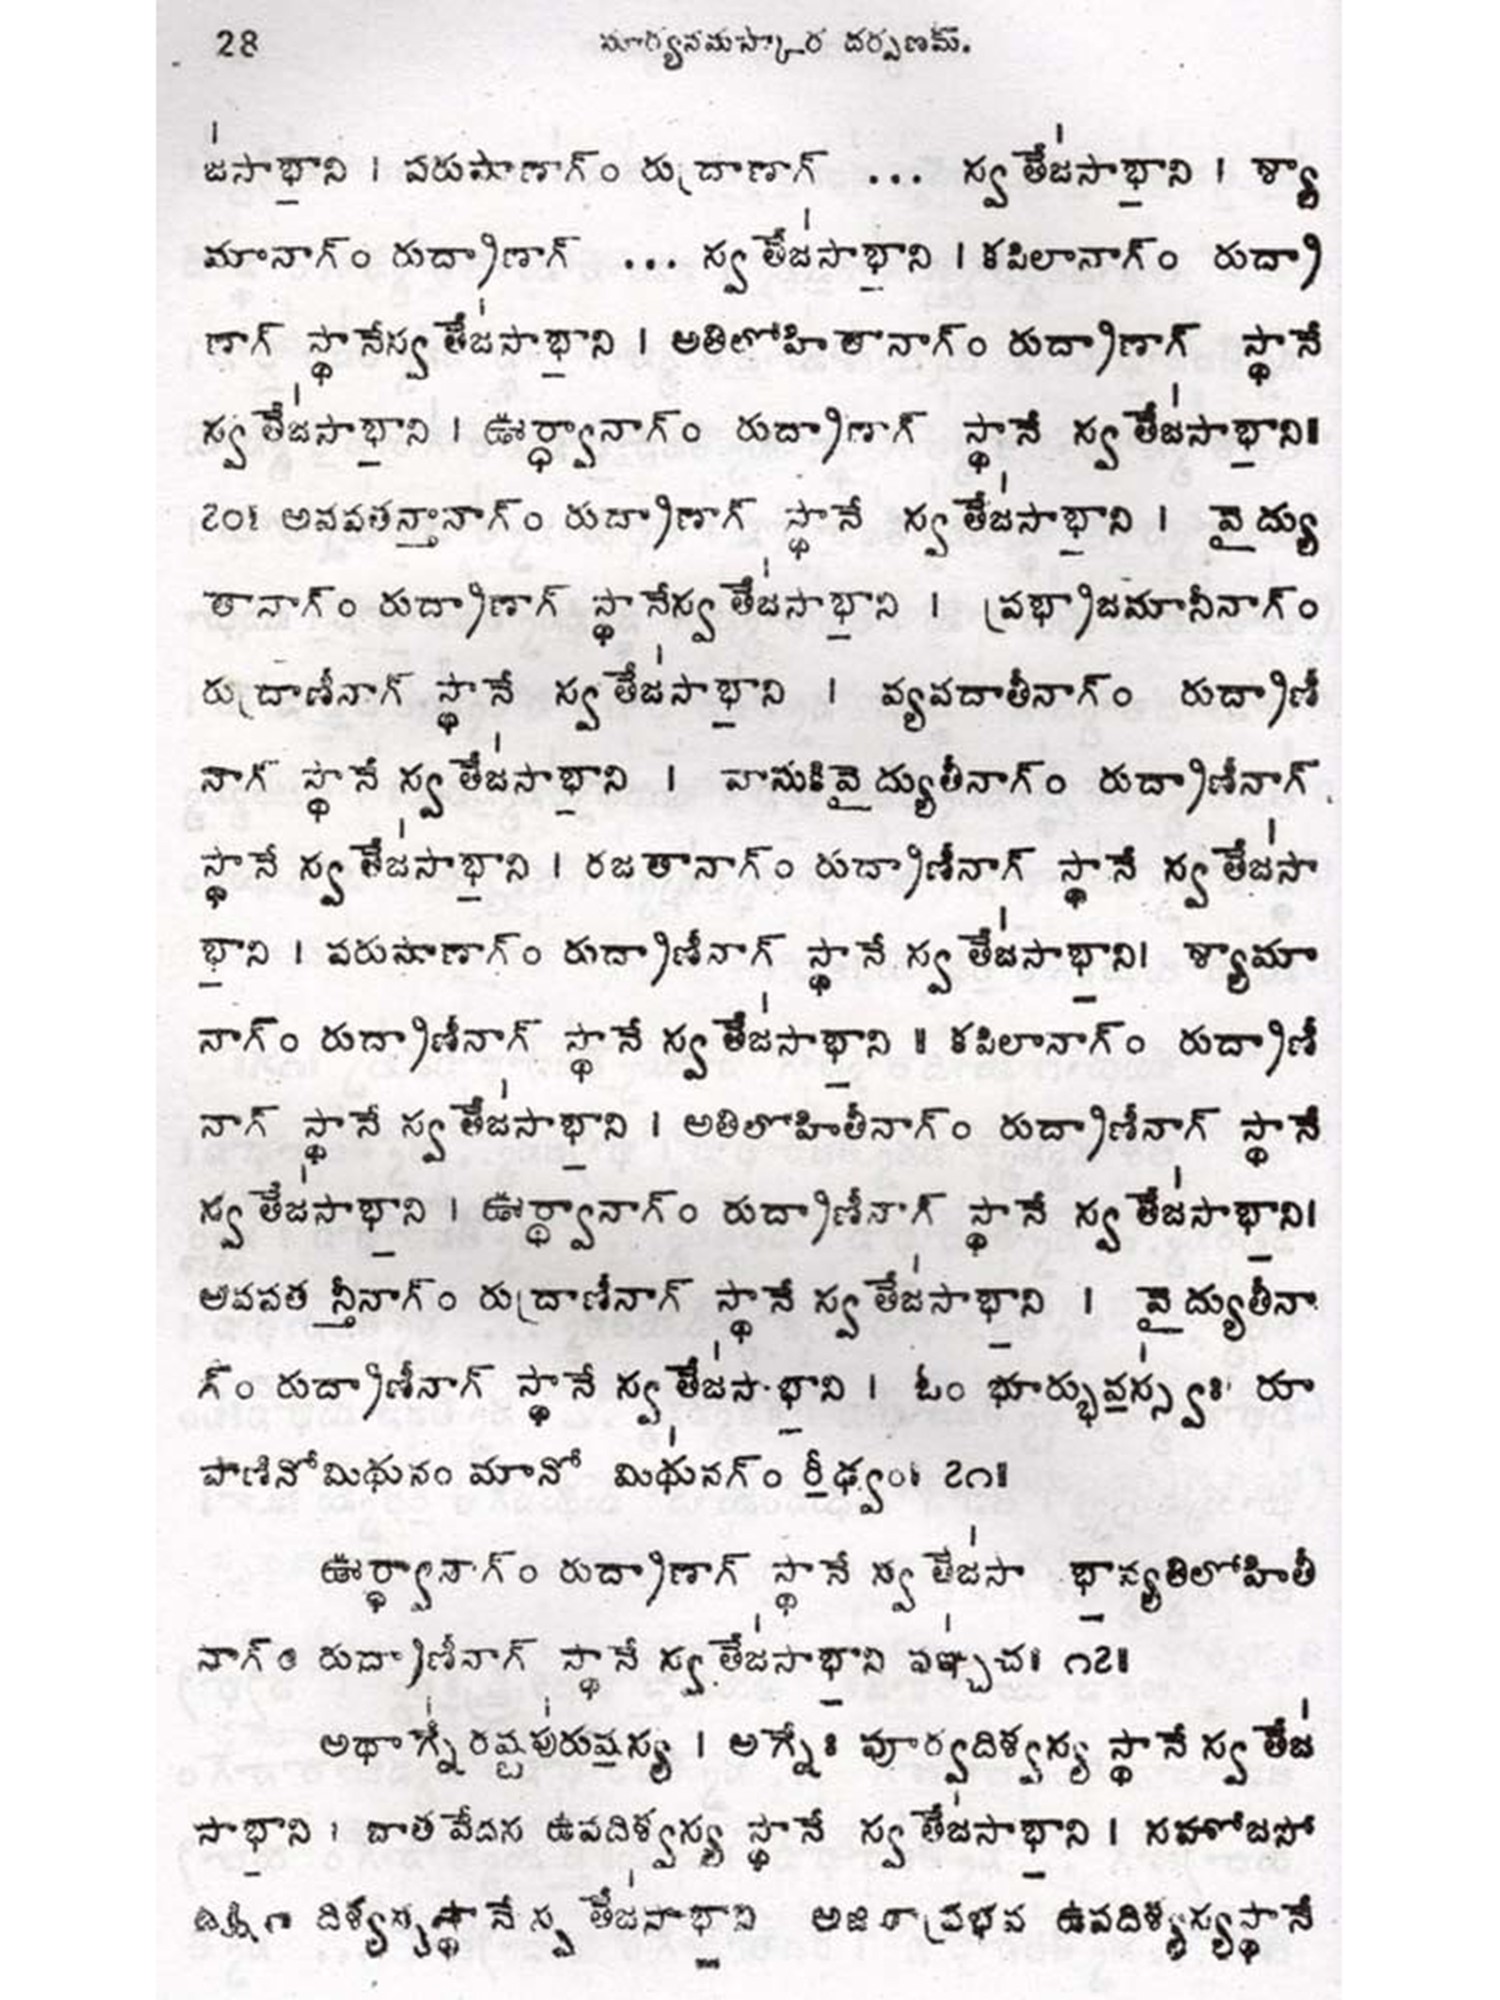 28 సూర్యనమస్కార దర్పణమ్.
జ॑సాభా॒ని । పరుషాణాగ్ం రుద్రాణాగ్ ... స్వతేజ॑సాభా॒ని । శ్యా
మానాగ్ం రుద్రాణాగ్ ... స్వతేజ॑సాభా॒ని । కపిలానాగ్ం రుద్రా
ణాగ్ స్థానేస్వతేజ॑సాభా॒ని । అతిలోహితానాగ్ం రుద్రాణాగ్ స్థానే
స్వతేజ॑సాభా॒ని । ఊర్ధ్వానాగ్ం రుద్రాణాగ్ స్థానే స్వతేజ॑సాభా॒ని॥
౨౦। అవపతన్తానాగ్ం రుద్రాణాగ్ స్థానే స్వతేజ॑సాభా॒ని । వైద్యు
తానాగ్ం రుద్రాణాగ్ స్థానేస్వతేజ॑సాభా॒ని । ప్రభ్రాజమానీనాగ్ం
రుద్రాణీనాగ్ స్థానే స్వతేజ॑సాభా॒ని । వ్యవదాతీనాగ్ం రుద్రాణీ
నాగ్ స్థానే స్వతేజ॑సాభా॒ని । వాసుకివైద్యుతీనాగ్ం రుద్రాణీనాగ్
స్థానే స్వతేజ॑సాభా॒ని । రజతానాగ్ం రుద్రాణీనాగ్ స్థానే స్వతేజ॑సా
భా॒ని । పరుషాణాగ్ం రుద్రాణీనాగ్ స్థానే స్వతేజ॑సాభా॒ని। శ్యామా
నాగ్ం రుద్రాణీనాగ్ స్థానే స్వతేజ॑సాభా॒ని ॥ కపిలానాగ్ం రుద్రాణీ
నాగ్ స్థానే స్వతేజ॑సాభా॒ని । అతిలోహితీనాగ్ం రుద్రాణీనాగ్ స్థానే
స్వతేజ॑సాభా॒ని । ఊర్ధ్వానాగ్ం రుద్రాణీనాగ్ స్థానే స్వతేజ॑సాభా॒ని।
అవపతన్తీనాగ్ం రుద్రాణీనాగ్ స్థానే స్వతేజ॑సాభా॒ని । వైద్యుతీనా
గ్ం రుద్రాణీనాగ్ స్థానే స్వతేజ॑సాభా॒ని । ఓం భూర్భువ॒స్స్వః॑ రూ
పాణినోమిథునం మానో మిథు॑నగ్ం రీ॒ఢ్వం॥ ౨౧॥
ఊర్ధ్వానాగ్ం రుద్రాణాగ్ స్థానే స్వతేజ॑సా భా॒న్యతిలోహితీ
నాగ్ం రుద్రాణీనాగ్ స్థానే స్వతేజ॑సాభా॒ని పఞ్చ॑చ॥ ౧౨॥
అథాగ్నే॑రష్టపు॑రుష॒స్య । అగ్నేః పూర్వదిశ్వస్య స్థానే స్వతేజ॑
సాభా॒ని । జాతవేదస ఉపదిశ్వస్య స్థానే స్వతేజ॑సాభా॒ని । సహోజసో
దిశ్యస్యస్థానే స్వతేజ॑సాభా॒ని అజిరాప్రభవ ఉపదిశ్యస్యస్థానే